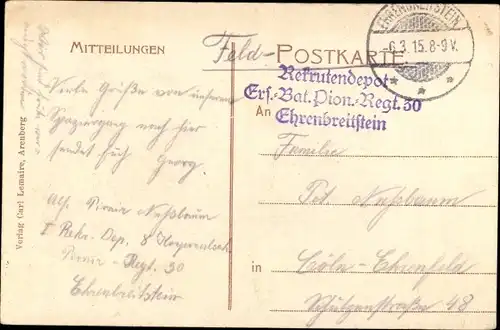 MITTEILUNGEN
Feld-POSTKARTE
EHRENBREITSTEIN
-6.3.15.8-9V.
Rekrutendepot
Ers.-Bat. Pion.-Regt. 30
Ehrenbreitstein
Viele Grüße von unserem
Spaziergang nach hier
sendet Euch Georg.
Abs. Pionier Nußbaum
I Rekr.-Dep. 8
Pionier-Regt. 30
Ehrenbreitstein
An
Familie
Pet. Nußbaum
in Cöln-Ehrenfeld
48
Verlag Carl Lemaire, Arenberg